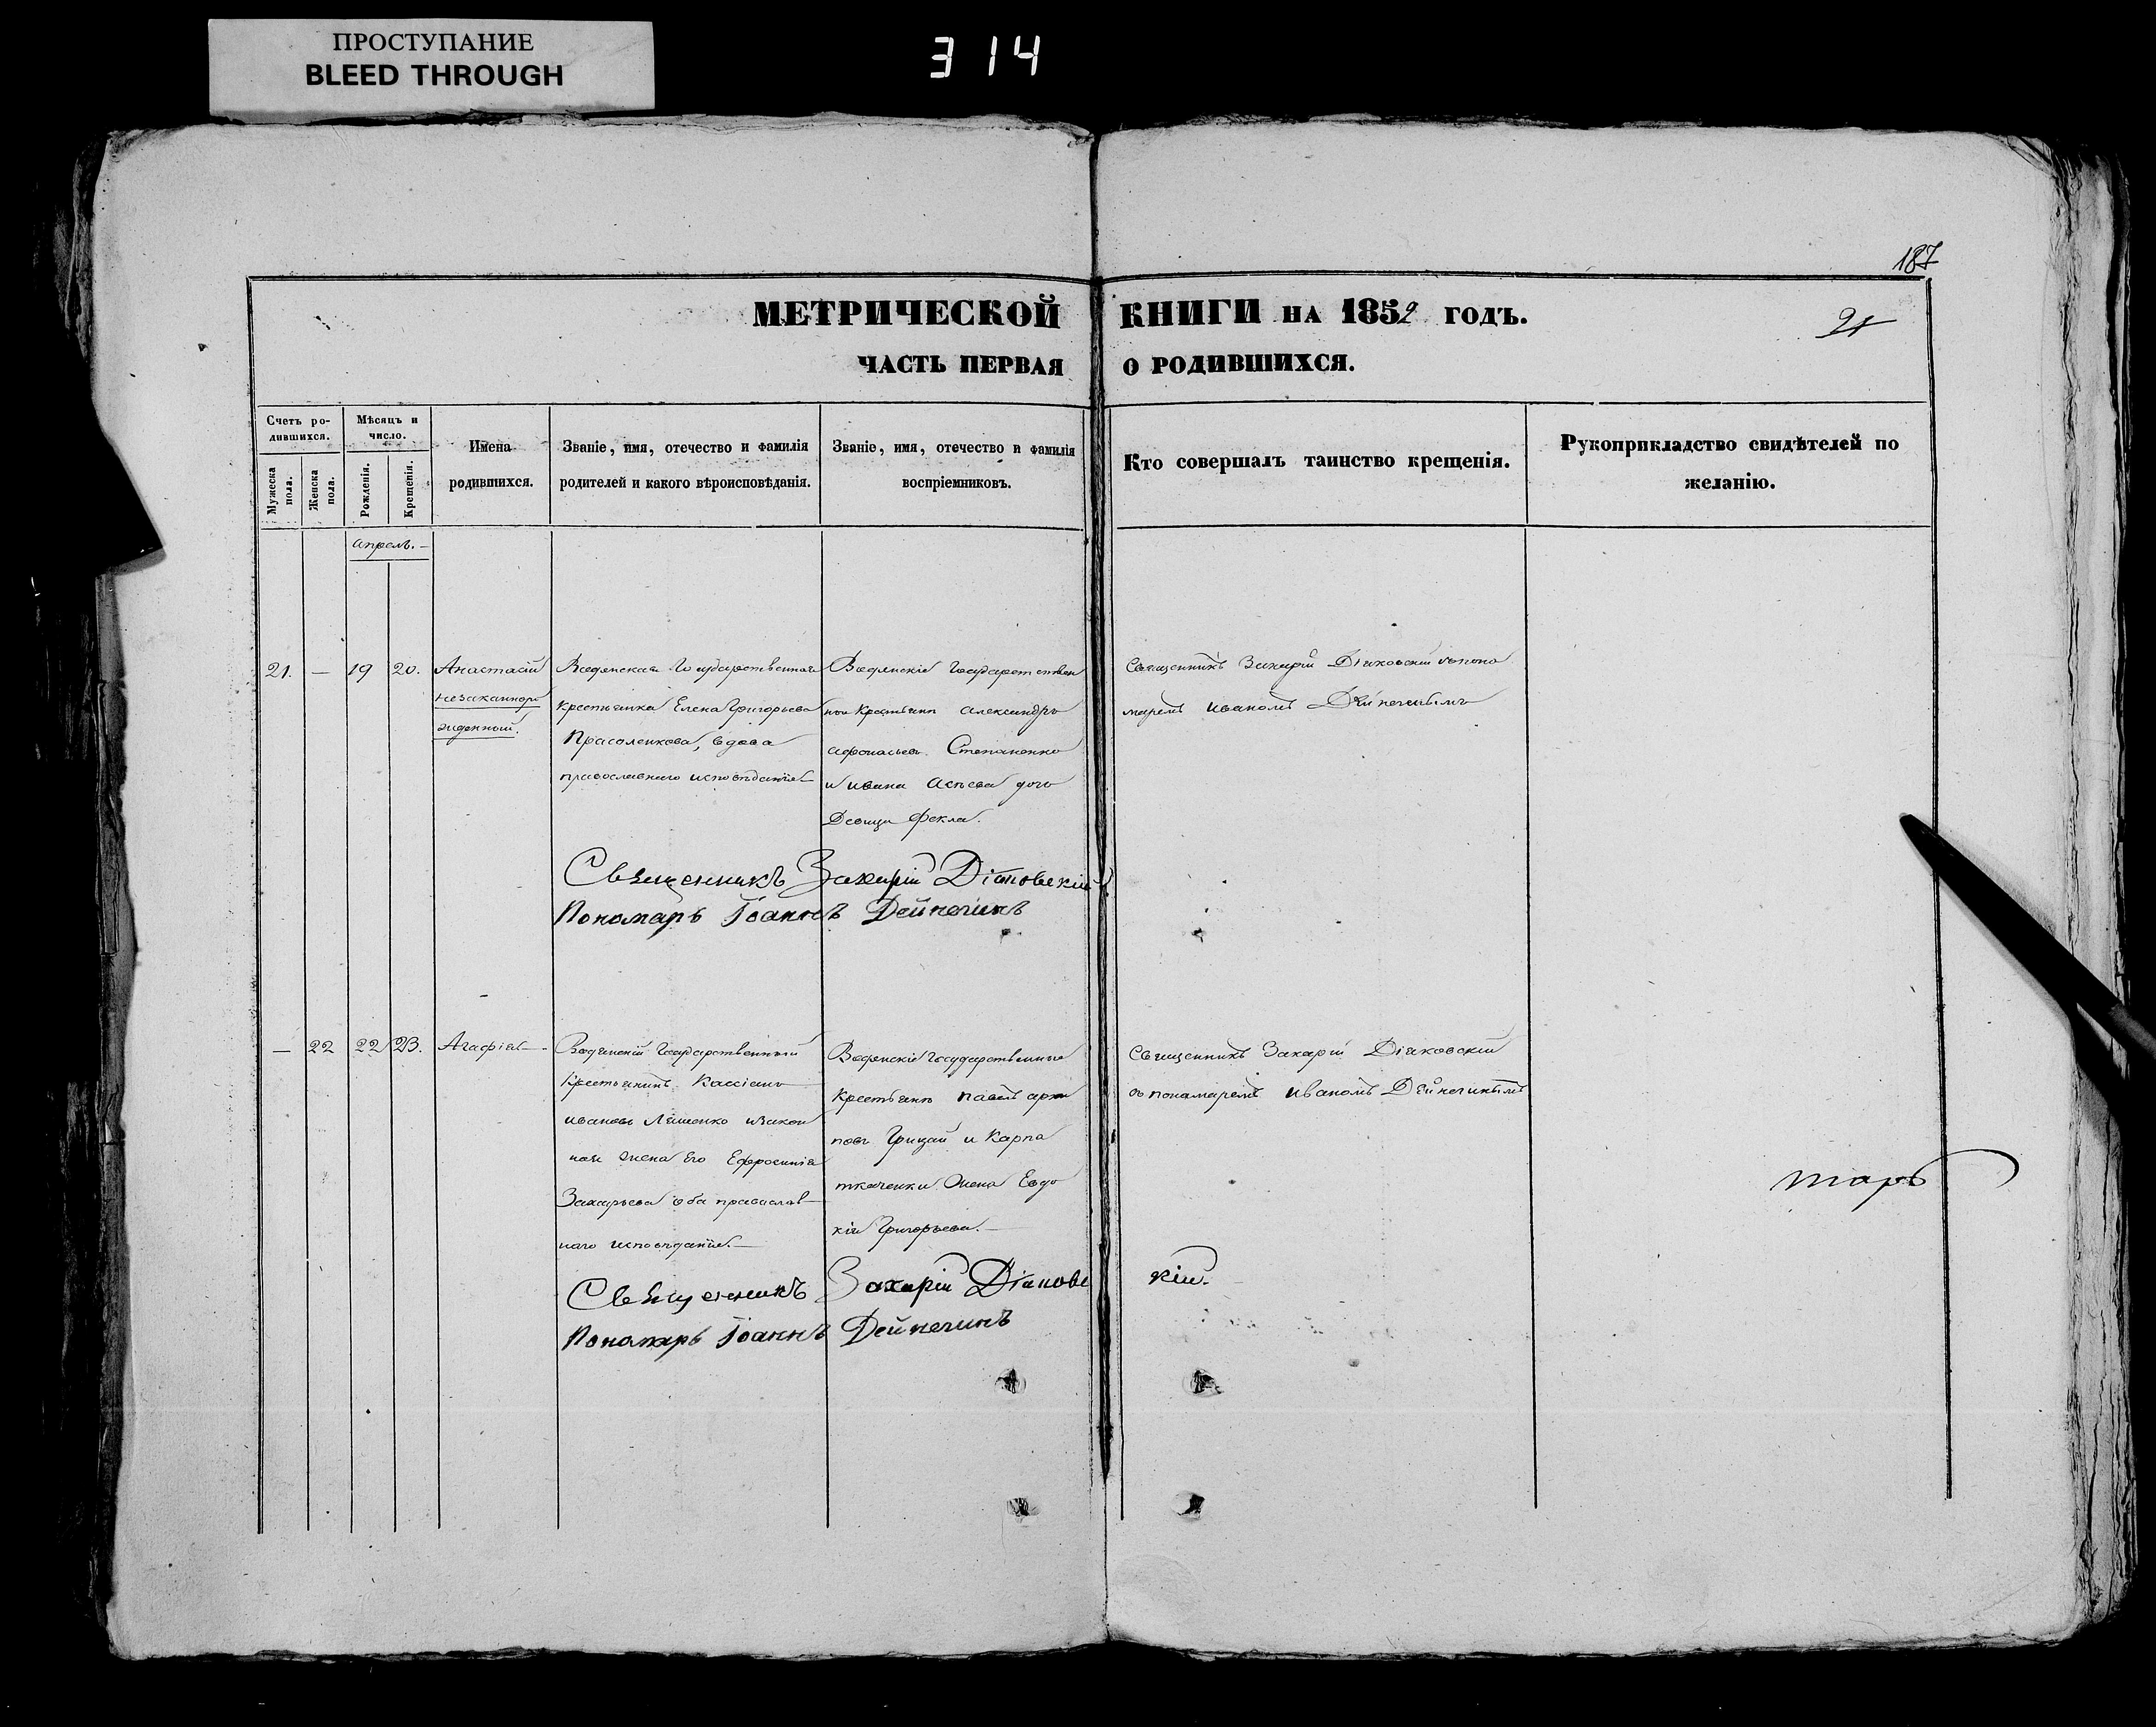 ПРОСТУПАНИЕ
BLEED THROUGH
314
187
МЕТРИЧЕСКОЙ КНИГИ НА 1852 ГОДЪ.
21
ЧАСТЬ ПЕРВАЯ О РОДИВШИХСЯ.
Счетъ ро-
дившихся.
Мужеска
пола.
Женска
пола.
Мѣсяцъ и
число.
Рожденія.
Крещенія.
Имена
родившихся.
Званіе, имя, отечество и фамилія
родителей и какого вѣроисповѣданія.
Званіе, имя, отечество и фамилія
воспріемниковъ.
Кто совершалъ таинство крещенія.
Рукоприкладство свидѣтелей по
желанію.
апрель.—
21. — 19 20.
Анастасій
незаконнор
жденный.
Водянская Государственная
крестьянка Елена Григорьева
Прасоленкова, вдова
православнаго исповѣданія—
Водянскіе Государствен
ные Крестьяне Александръ
Афонасьевъ Степаненко
и Ивана дочь
Девица Фекла.
Священникъ Захарій Діяковскій с поно
маремъ Иваномъ Дейнечинымъ
Священникъ Захарій Діаковскій
Пономарь Іоаннъ Дейнечинъ
— 22 22 23.
Агафія—
Водянскій Государственный
Крестьянинъ Кассіанъ
Ивановъ Ляшенко и закон
ная жена Его Ефросинія
Захарьева оба православ—
наго исповѣданія.—
Водянскіе Государственные
Крестьяне Павелъ архи
повъ Грицай и Карпа
ткаченки Жена Евдо
кія Григорьева.—
Священникъ Захарій Діяковскій
съ пономаремъ Иваномъ Дейнечинымъ
тарь
Священникъ Захарій Діаковс кій.
Пономарь Іоаннъ Дейнечинъ